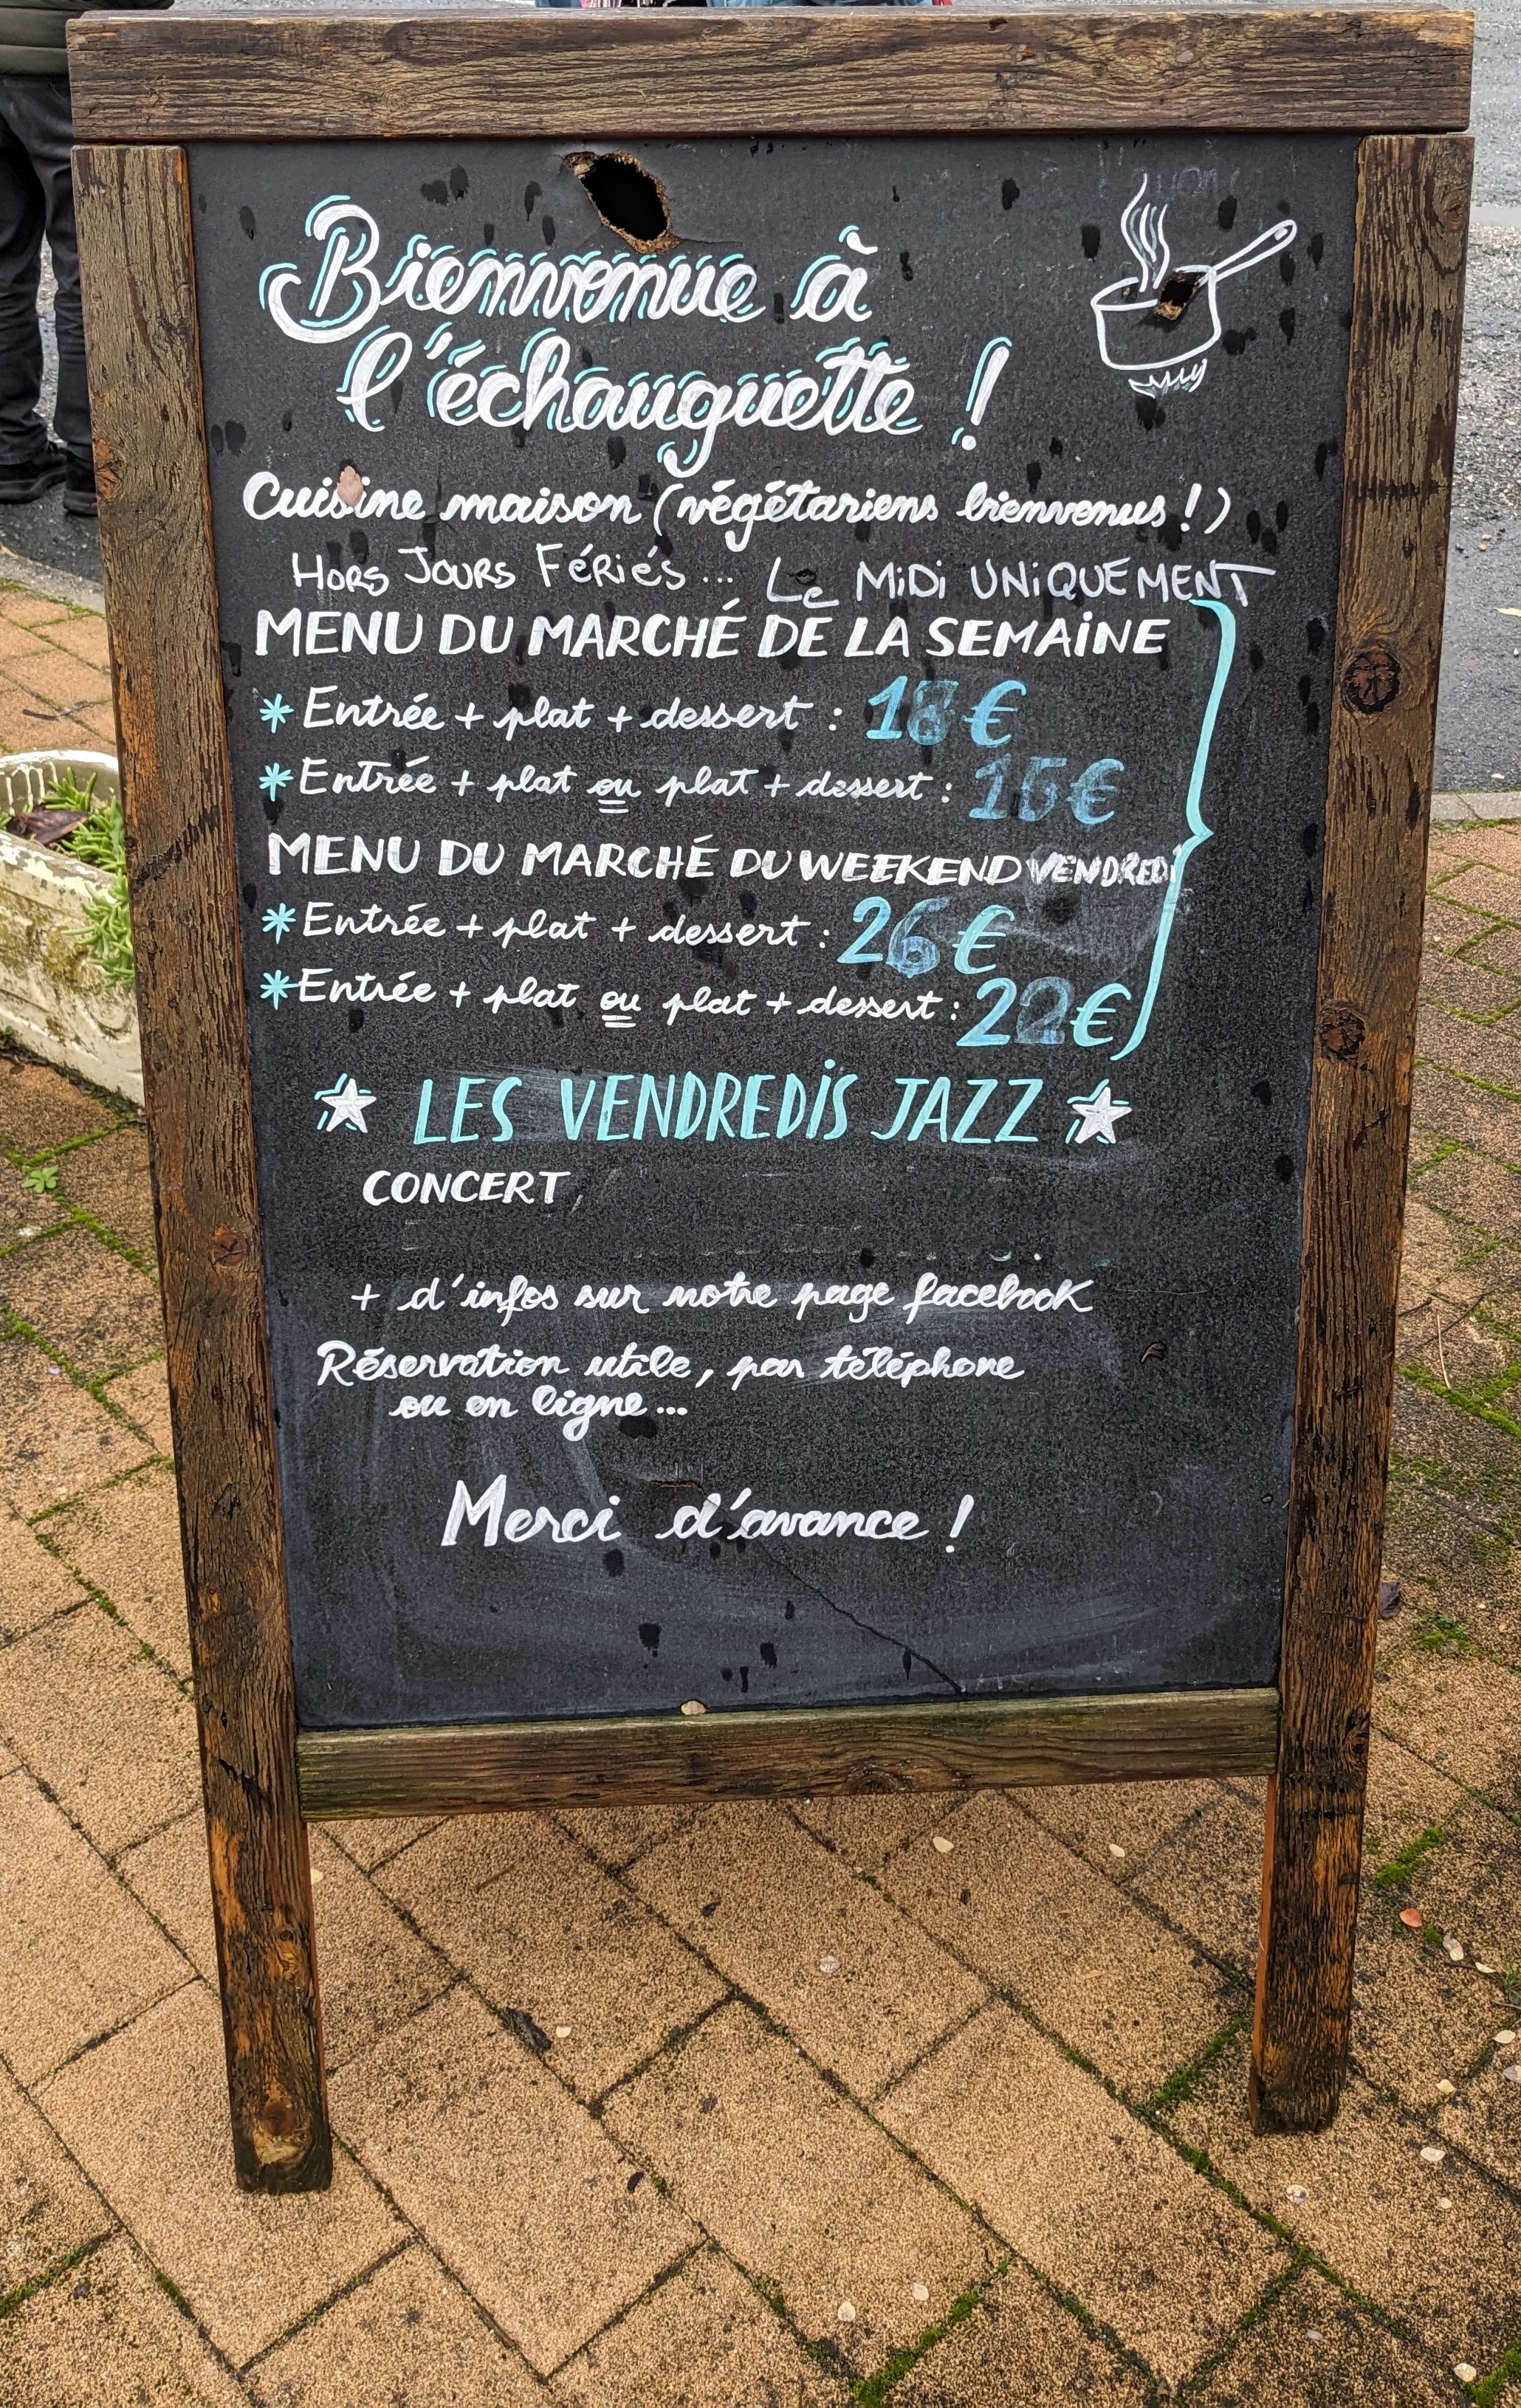 Bienvenue à
l'échauguette !
Cuisine maison (végétariens bienvenus !)
HORS JOURS FÉRIÉS... Le MIDI UNIQUEMENT
MENU DU MARCHÉ DE LA SEMAINE
* Entrée + plat + dessert : 18€
* Entrée + plat ou plat + dessert : 15€
MENU DU MARCHÉ DU WEEKEND VENDREDI
* Entrée + plat + dessert : 26€
* Entrée + plat ou plat + dessert : 22€
LES VENDREDIS JAZZ
CONCERT
+ d'infos sur notre page facebook
Réservation utile, par téléphone
ou en ligne...
Merci d'avance !